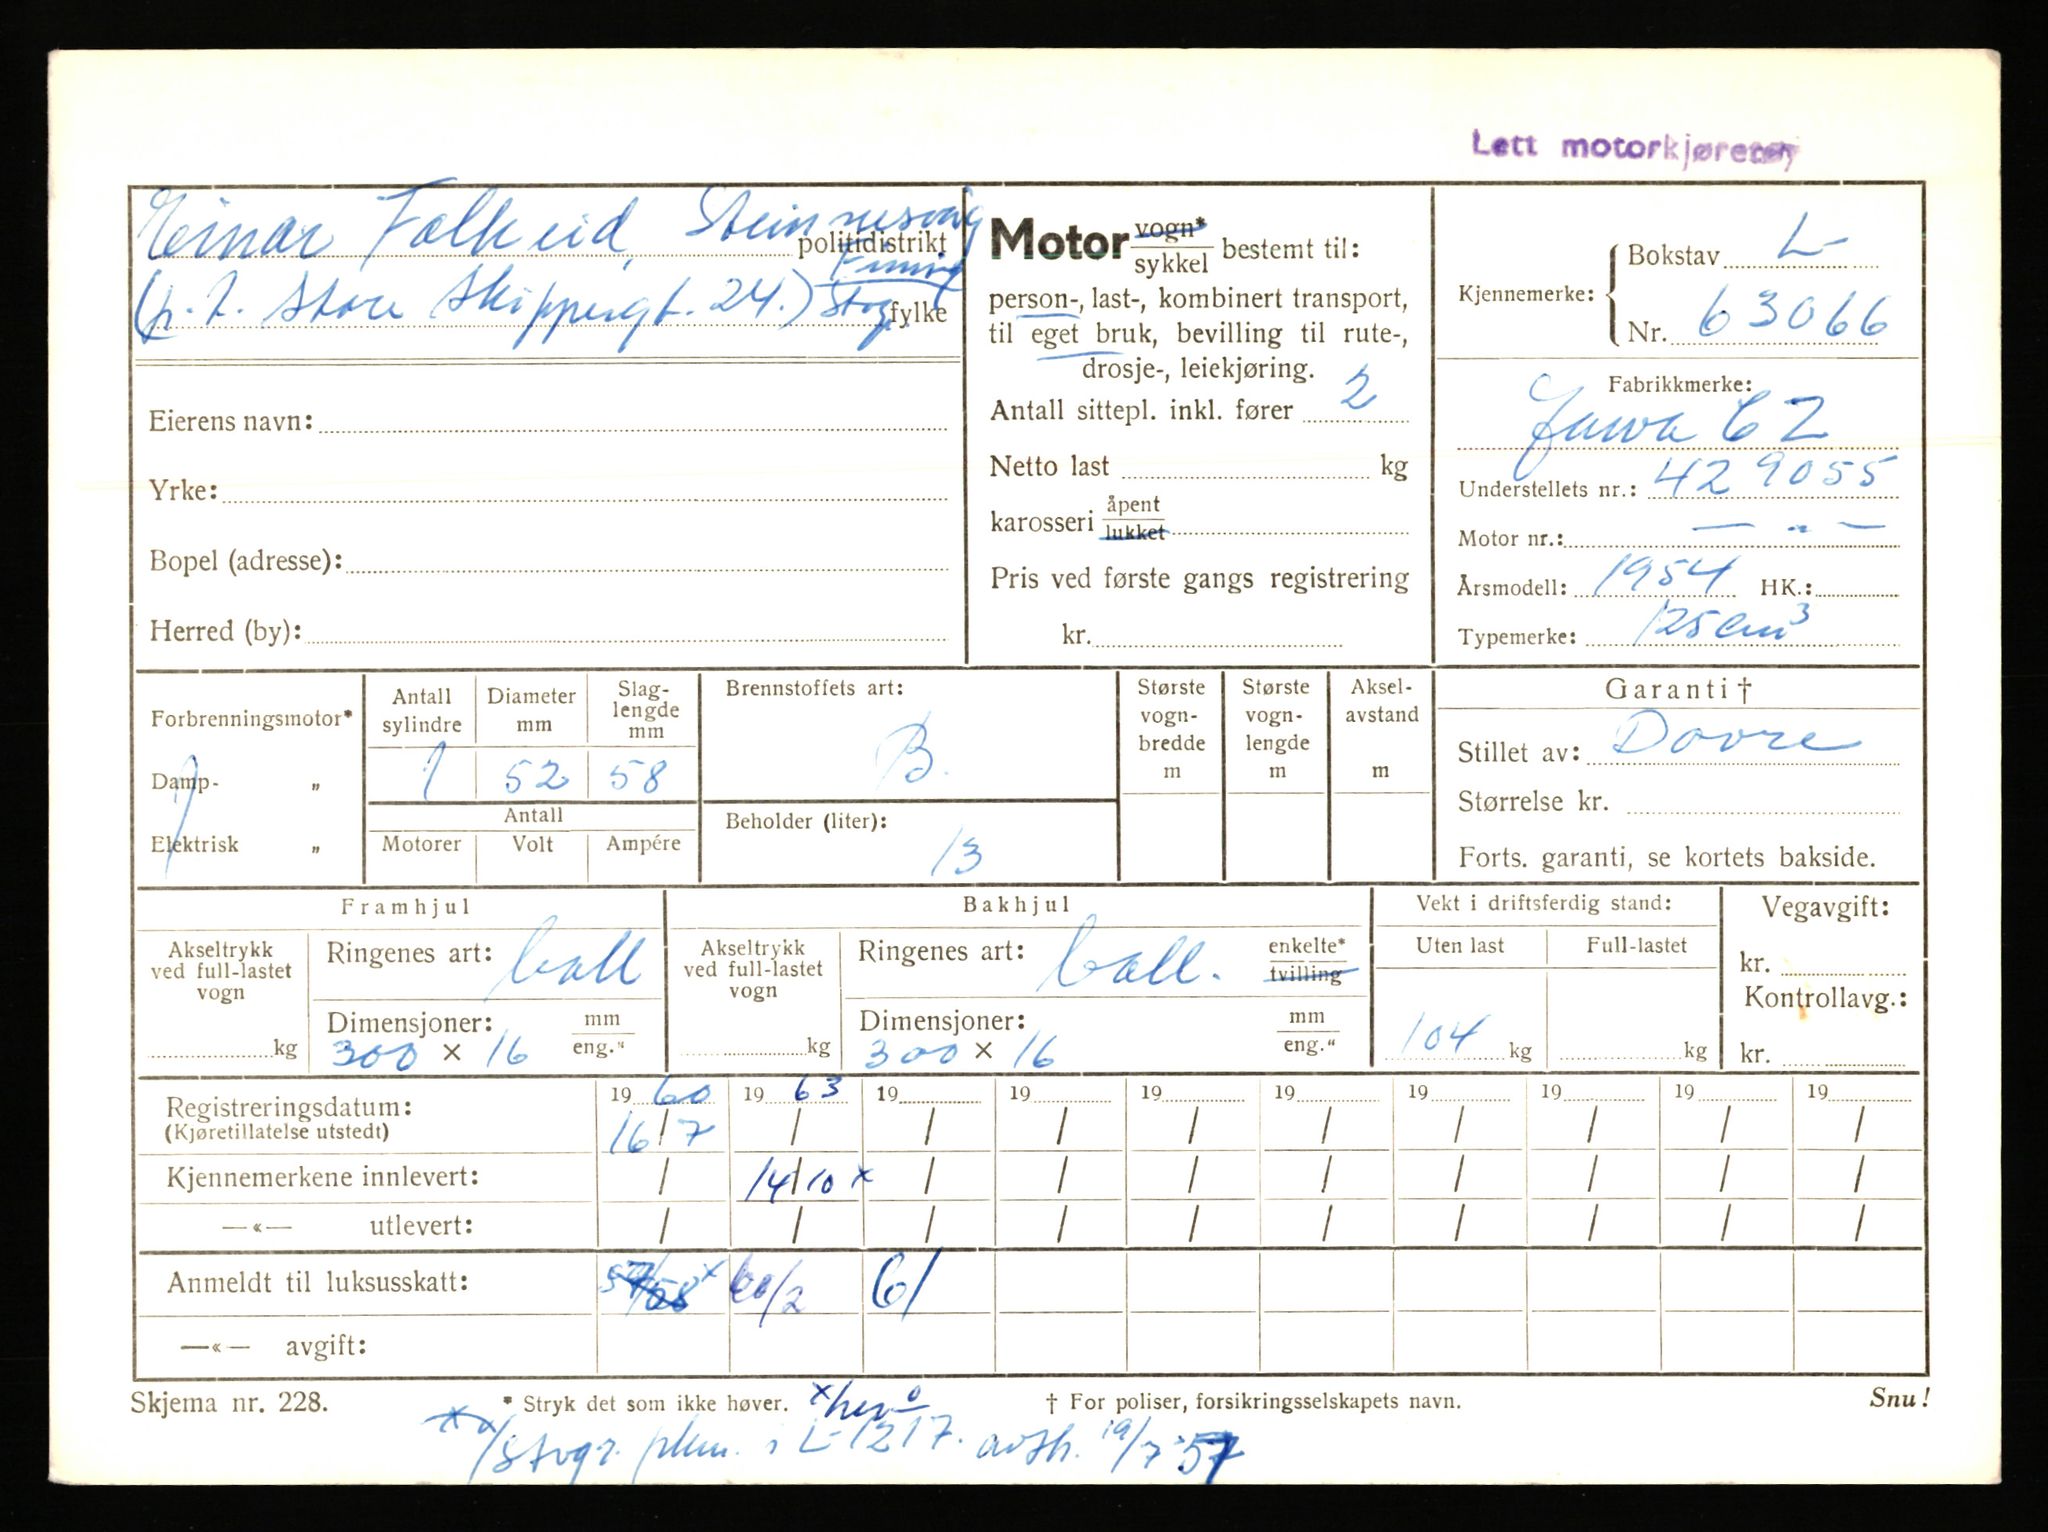 Lett motorkjøretøy
Einar Falkeid, Steinnesvåg
politidistrikt
(p.t. Store Skippergt. 24.) Stvgr. fylke
Eierens navn:
Yrke:
Bopel (adresse):
Herred (by):
Motor vogn* sykkel bestemt til:
person-, last-, kombinert transport,
til eget bruk, bevilling til rute-,
drosje-, leiekjøring.
Antall sittepl. inkl. fører 2
Netto last kg
karosseri åpent lukket
Pris ved første gangs registrering
kr.
Kjennemerke: Bokstav L-
Nr. 63066
Fabrikkmerke:
Jawa CZ
Understellets nr.: 429055
Motor nr.: — „ —
Årsmodell: 1954 HK.:
Typemerke: 125 cm3
Forbrenningsmotor*
Damp- „
Elektrisk „
Antall sylindre
Diameter mm
Slag-
lengde
mm
1 52 58
Antall
Motorer Volt Ampére
Brennstoffets art:
B.
Beholder (liter):
13
Største
vogn-
bredde
m
Største
vogn-
lengde
m
Aksel-
avstand
m
Garanti †
Stillet av: Dovre
Størrelse kr.
Forts. garanti, se kortets bakside.
Framhjul
Akseltrykk
ved full-lastet
vogn
kg
Ringenes art: ball
Dimensjoner: mm
300 × 16 eng."
Bakhjul
Akseltrykk
ved full-lastet
vogn
kg
Ringenes art: ball. enkelte* tvilling
Dimensjoner: mm
300 × 16 eng."
Vekt i driftsferdig stand:
Uten last Full-lastet
104 kg kg
Vegavgift:
kr.
Kontrollavg.:
kr.
Registreringsdatum: 19 60 19 63 19 19 19 19 19 19 19 19
(Kjøretillatelse utstedt) 16/7 / / / / / / / / /
Kjennemerkene innlevert: / 14/10 x / / / / / / / /
—«— utlevert: / / / / / / / / / /
Anmeldt til luksusskatt: 58 x 60/2 61
—«— avgift:
Skjema nr. 228. * Stryk det som ikke høver. x/ † For poliser, forsikringsselskapets navn. Snu!
x x/ Stvgr. i L-1217. avsk. 19/7 57